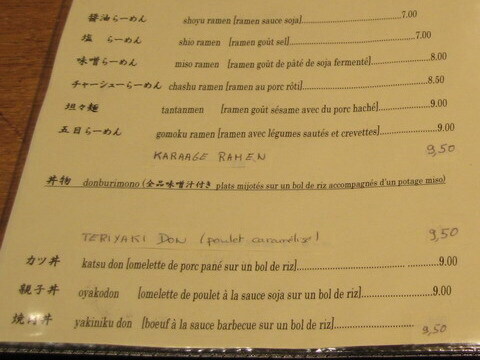 醤油らーめん shoyu ramen [ramen sauce soja] 7.00
塩 らーめん shio ramen [ramen goût sel] 7.00
味噌らーめん miso ramen [ramen goût de pâté de soja fermenté] 8.00
チャーシューらーめん chashu ramen [ramen au porc rôti] 8.50
坦々麺 tantanmen [ramen goût sésame avec du porc haché] 9.00
五目らーめん gomoku ramen [ramen avec légumes sautés et crevettes] 9.00
KARAAGE RAMEN 9,50
丼物 donburimono (全品味噌汁付き plats mijotés sur un bol de riz accompagnés d'un potage miso)
TERIYAKI DON (poulet caramélisé) 9,50
カツ丼 katsu don [omelette de porc pané sur un bol de riz] 9.00
親子丼 oyakodon [omelette de poulet à la sauce soja sur un bol de riz] 9.00
焼肉丼 yakiniku don [boeuf à la sauce barbecue sur un bol de riz] 9,50